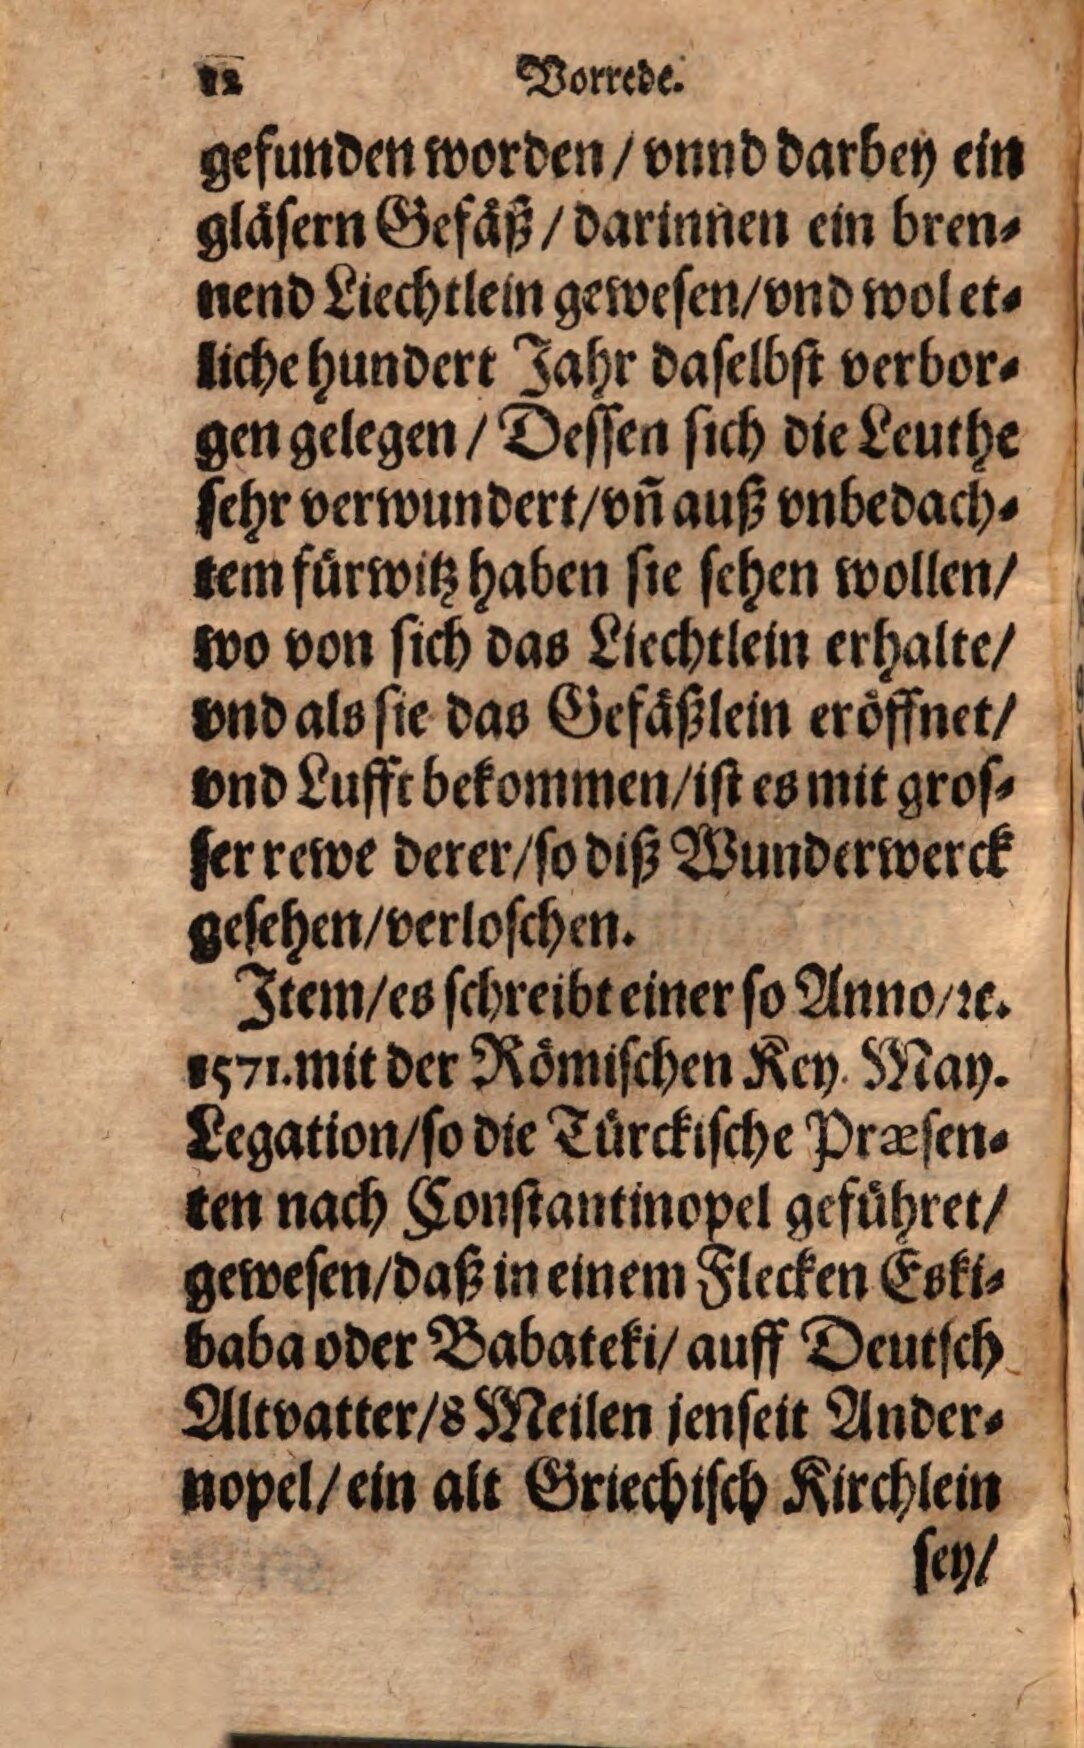 12 Vorrede.
gefunden worden / vnnd darbey ein
gläsern Gefäß / darinnen ein bren⸗
nend Liechtlein gewesen/vnd wol et⸗
liche hundert Jahr daselbst verbor⸗
gen gelegen / Dessen sich die Leuthe
sehr verwundert/vñ auß vnbedach⸗
tem fürwitz haben sie sehen wollen/
wo von sich das Liechtlein erhalte/
vnd als sie das Gefäßlein eröffnet/
vnd Lufft bekommen/ist es mit gros⸗
ser rewe derer/so diß Wunderwerck
gesehen/verloschen.
Item/es schreibt einer so Anno/ꝛc.
1571.mit der Römischen Key. May.
Legation/so die Türckische Præsen⸗
ten nach Constantinopel geführet/
gewesen/daß in einem Flecken Eski⸗
baba oder Babateki/ auff Deutsch
Altvatter/8 Meilen jenseit Ander⸗
nopel/ ein alt Griechisch Kirchlein
sey/